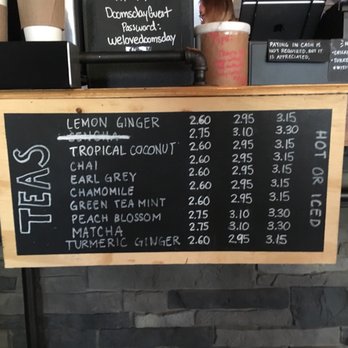 DoomsdayGuest
Password:
welovedoomsday
PAYING IN CASH IS
NOT REQUIRED, BUT IT
IS APPRECIATED.
TEAS
HOT OR ICED
LEMON GINGER 2.60 2.95 3.15
SENCHA 2.75 3.10 3.30
TROPICAL COCONUT 2.60 2.95 3.15
CHAI 2.60 2.95 3.15
EARL GREY 2.60 2.95 3.15
CHAMOMILE 2.60 2.95 3.15
GREEN TEA MINT 2.60 2.95 3.15
PEACH BLOSSOM 2.75 3.10 3.30
MATCHA 2.75 3.10 3.30
TURMERIC GINGER 2.60 2.95 3.15